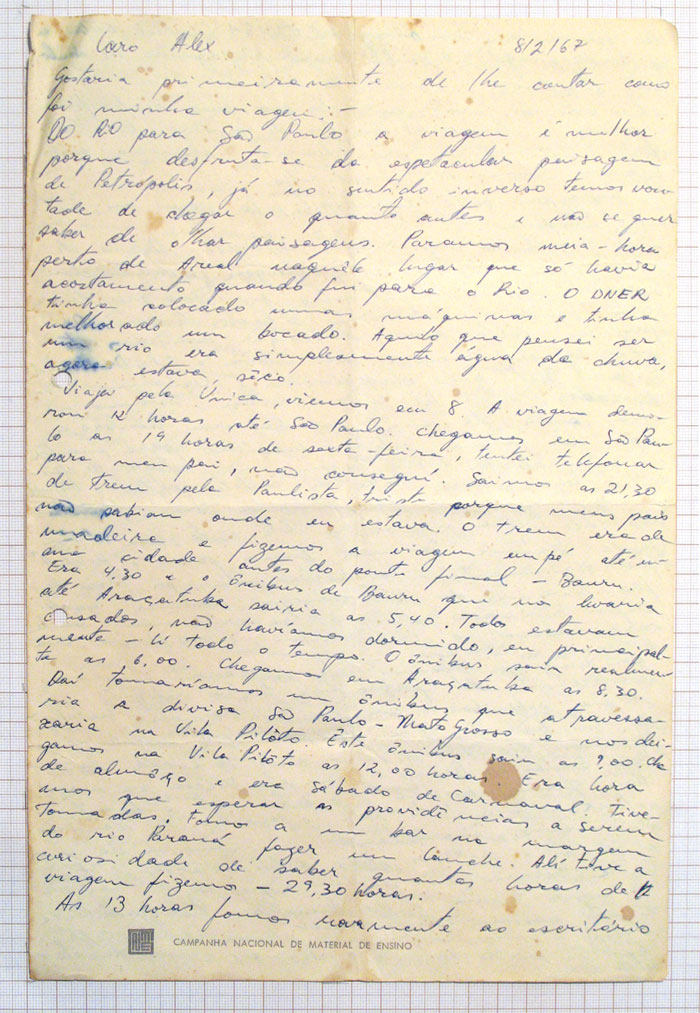 Caro Alex 8/2/67
Gostaria primeiramente de lhe contar como
foi minha viagem: -
DO RIO para São Paulo a viagem é melhor
porque desfruta-se da espetacular paisagem
de Petrópolis, já no sentido inverso temos von-
tade de chegar o quanto antes e não se quer
saber de olhar paisagens. Paramos meia-hora
perto de Areal naquêle lugar que só havia
acostamento quando fui para o Rio. O DNER
tinha colocado umas máquinas e tinha
melhorado um bocado. Aquilo que pensei ser
um rio era simplesmente água da chuva,
agora estava sêco.
Viajei pela Única, viemos em 8. A viagem demo-
rou 12 horas até São Paulo. Chegamos em São Pau-
lo as 19 horas de sexta-feira, tentei telefonar
para meu pai, não conseguí. Saimos as 21,30
de trem pela Paulista, triste porque meus pais
não sabiam onde eu estava. O trem era de
madeira e fizemos a viagem em pé até u-
ma cidade antes do ponto final - Bauru.
Era 4,30 e o ônibus de Bauru que nos levaria
até Araçatuba sairia as 5,40. Todos estavam
cansados, não havíamos dormido, eu principal-
mente - lí todo o tempo. O ônibus saiu realmen-
te as 6,00. Chegamos em Araçatuba as 8,30.
Daí tomaríamos um ônibus que atravessa-
ria a divisa São Paulo - Mato Grosso e nos dei-
xaria na Vila Pilôto. Êste ônibus saiu as 9,00. che
gamos na Vila Pilôto as 12,00 horas. Era hora
de almôço e era sábado de Carnaval. Tive-
mos que esperar as providências a serem
tomadas. Fomos a um bar na margem
do rio Paraná fazer um lanche. Alí tive a
curiosidade de saber quantas horas de
viagem fizemos - 29,30 horas.
As 13 horas fomos novamente ao escritório
CAMPANHA NACIONAL DE MATERIAL DE ENSINO